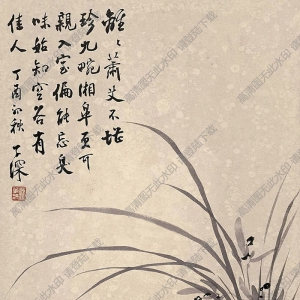 蕭艾不堪
珍九畹湘皐更可
親入室偏能忘臭
味始知空谷有
佳人 丁酉初秋